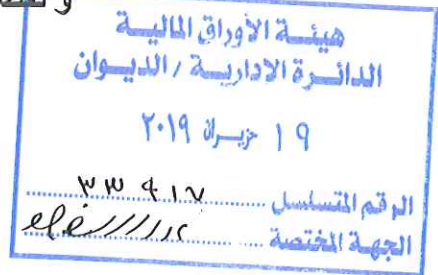 و
هيئة الأوراق المالية
الدائرة الادارية / الديوان
١٩ حزيران ٢٠١٩
الرقم المتسلسل
الجهة المختصة